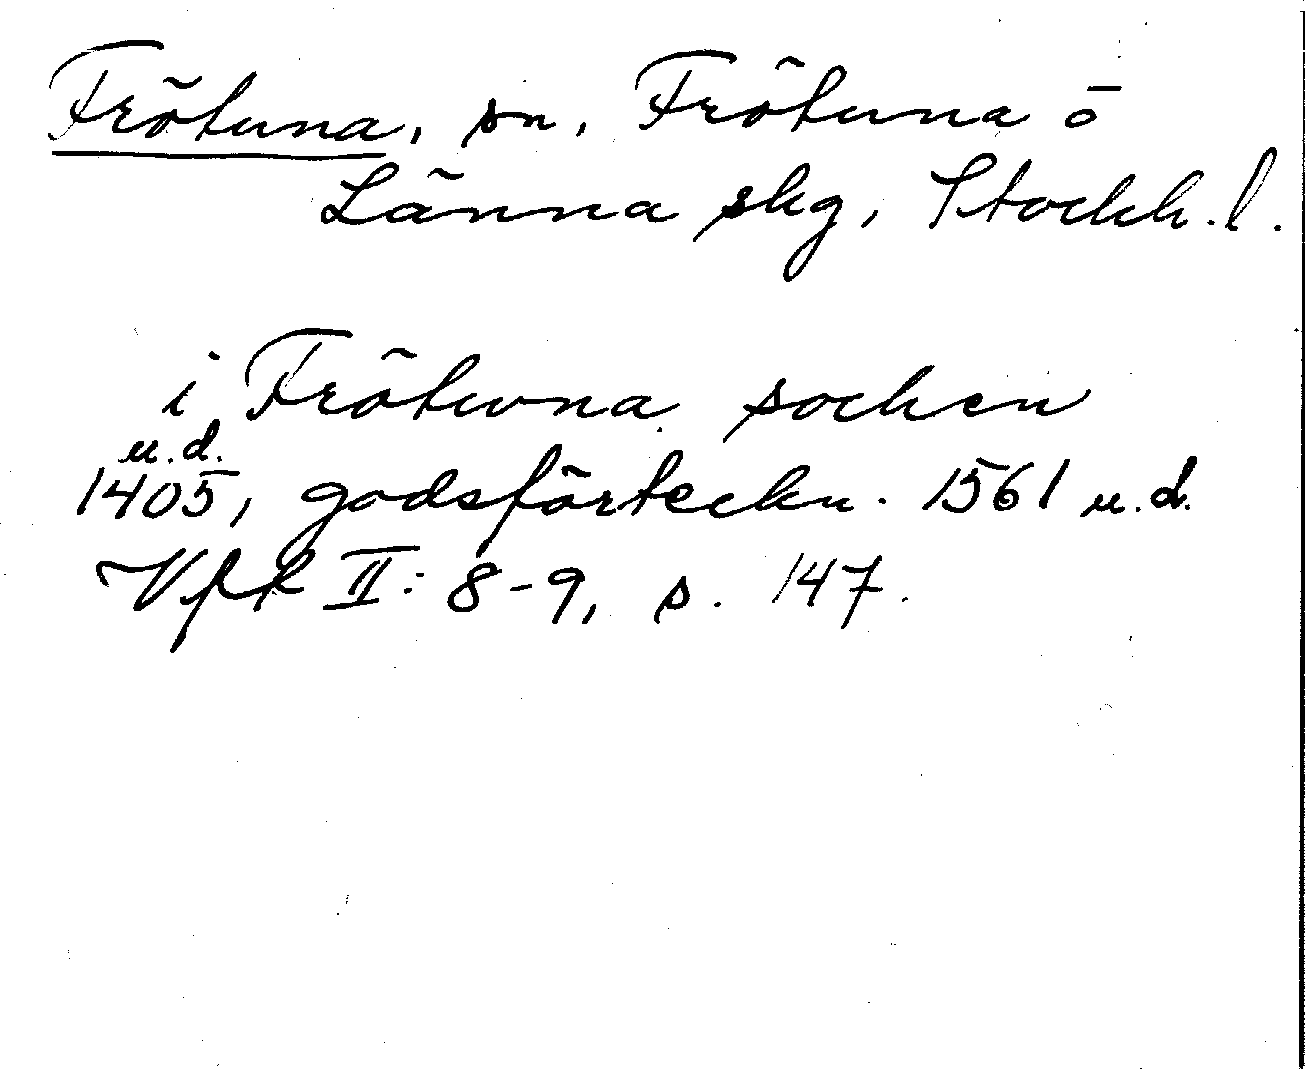 Frötuna, sn, Frötuna o
Länna skg, Stockh. l.
i Frötuna socken
u.d.
1405, godsförteckn. 1561 u.d.
Vfr II: 8-9, s. 147.